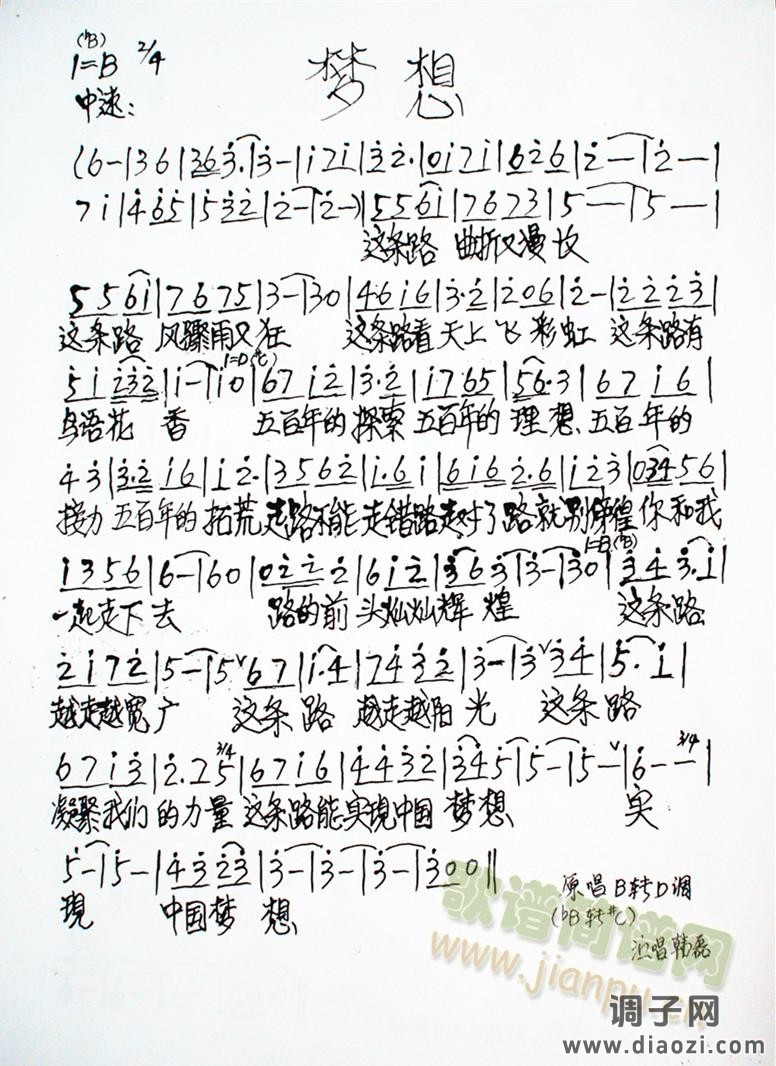 (♭B)
1=B 2/4
梦想
中速:
(6-|3 6|3 6 3.|3-|i 7 i|3 2.|0 i 7 i|6 2 6|2-|2-|
7 i|4 6 5|5 3 2|2-|2-)|5 5 6 i|7 6 7 3|5-|5-|
这条路 曲折又漫长
5 5 6 i|7 6 7 5|3-|3 0|4 6 i 6|3. 2|2 0 6|2-|2 2 2 3|
这条路 风骤雨又狂 这条路看天上飞彩虹 这条路有
1=D(♯C)
5 i 2 3 2|i-|i 0|6 7 i 2|3. 2|i 7 6 5|5 6. 3|6 7 i 6|
鸟语花香 五百年的探索 五百年的理想 五百年的
4 3|3. 2 i 6|i 2.|3 5 6 2|i. 6 i|6 i 6 2. 6|i 2 3|0 3 4 5 6|
接力 五百年的拓荒 走路不能走错路 走对了路就别彷徨 你和我
i 3 5 6|6-|6 0|0 2 2 2|6 i 2|3 6 3|3-|3 0|3 4 3. i|
1=B(♭B)
一起走下去 路的前头灿灿辉煌 这条路
2 i 7 2|5-|5 ∨ 6 7|i. 4|7 4 3 2|3-|3 ∨ 3 4|5. i|
越走越宽广 这条路 越走越阳光 这条路
6 7 i 3|2. 7 5|6 7 i 6|4 4 3 2|3 4 5|5-|5- ∨|6 - -|
3/4
3/4
凝聚我们的力量 这条路能实现中国梦想 实
5-|5-|4 3 2 3|3-|3-|3-|3 0 0‖
现 中国梦想
原唱B转D调
(♭B转♯C)
演唱韩磊
歌谱简谱网
www.jianpu.cn
调子网
www.diaozi.com